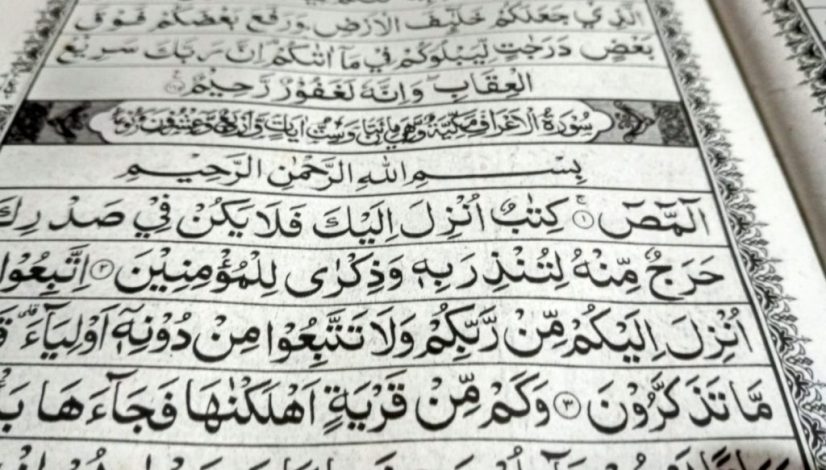 الَّذِيْ جَعَلَكُمْ خَلٰٓئِفَ الْاَرْضِ وَرَفَعَ بَعْضَكُمْ فَوْقَ
بَعْضٍ دَرَجٰتٍ لِّيَبْلُوَكُمْ فِيْ مَاۤ اٰتٰىكُمْ اِنَّ رَبَّكَ سَرِيْعُ
الْعِقَابِ وَاِنَّهٗ لَغَفُوْرٌ رَّحِيْمٌ
سُوْرَةُ الْاَعْرَافِ مَكِّيَّةٌ وَّهِيَ مِائَتَانِ وَسِتُّ اٰيَاتٍ وَّاَرْبَعَةٌ وَّعِشْرُوْنَ رُكُوْعًا
بِسْمِ اللّٰهِ الرَّحْمٰنِ الرَّحِيْمِ
الٓمّٓصٓ ۝١ كِتٰبٌ اُنْزِلَ اِلَيْكَ فَلَا يَكُنْ فِيْ صَدْرِكَ
حَرَجٌ مِّنْهُ لِتُنْذِرَ بِهٖ وَذِكْرٰى لِلْمُؤْمِنِيْنَ ۝٢ اِتَّبِعُوْا
اُنْزِلَ اِلَيْكُمْ مِّنْ رَّبِّكُمْ وَلَا تَتَّبِعُوْا مِنْ دُوْنِهٖٓ اَوْلِيَآءَ
مَّا تَذَكَّرُوْنَ ۝٣ وَكَمْ مِّنْ قَرْيَةٍ اَهْلَكْنٰهَا فَجَآءَهَا